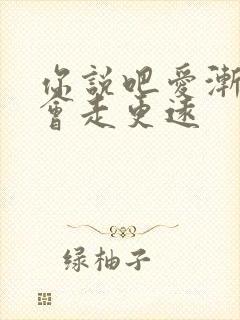 你說吧愛漸
會走更遠
绿柚子